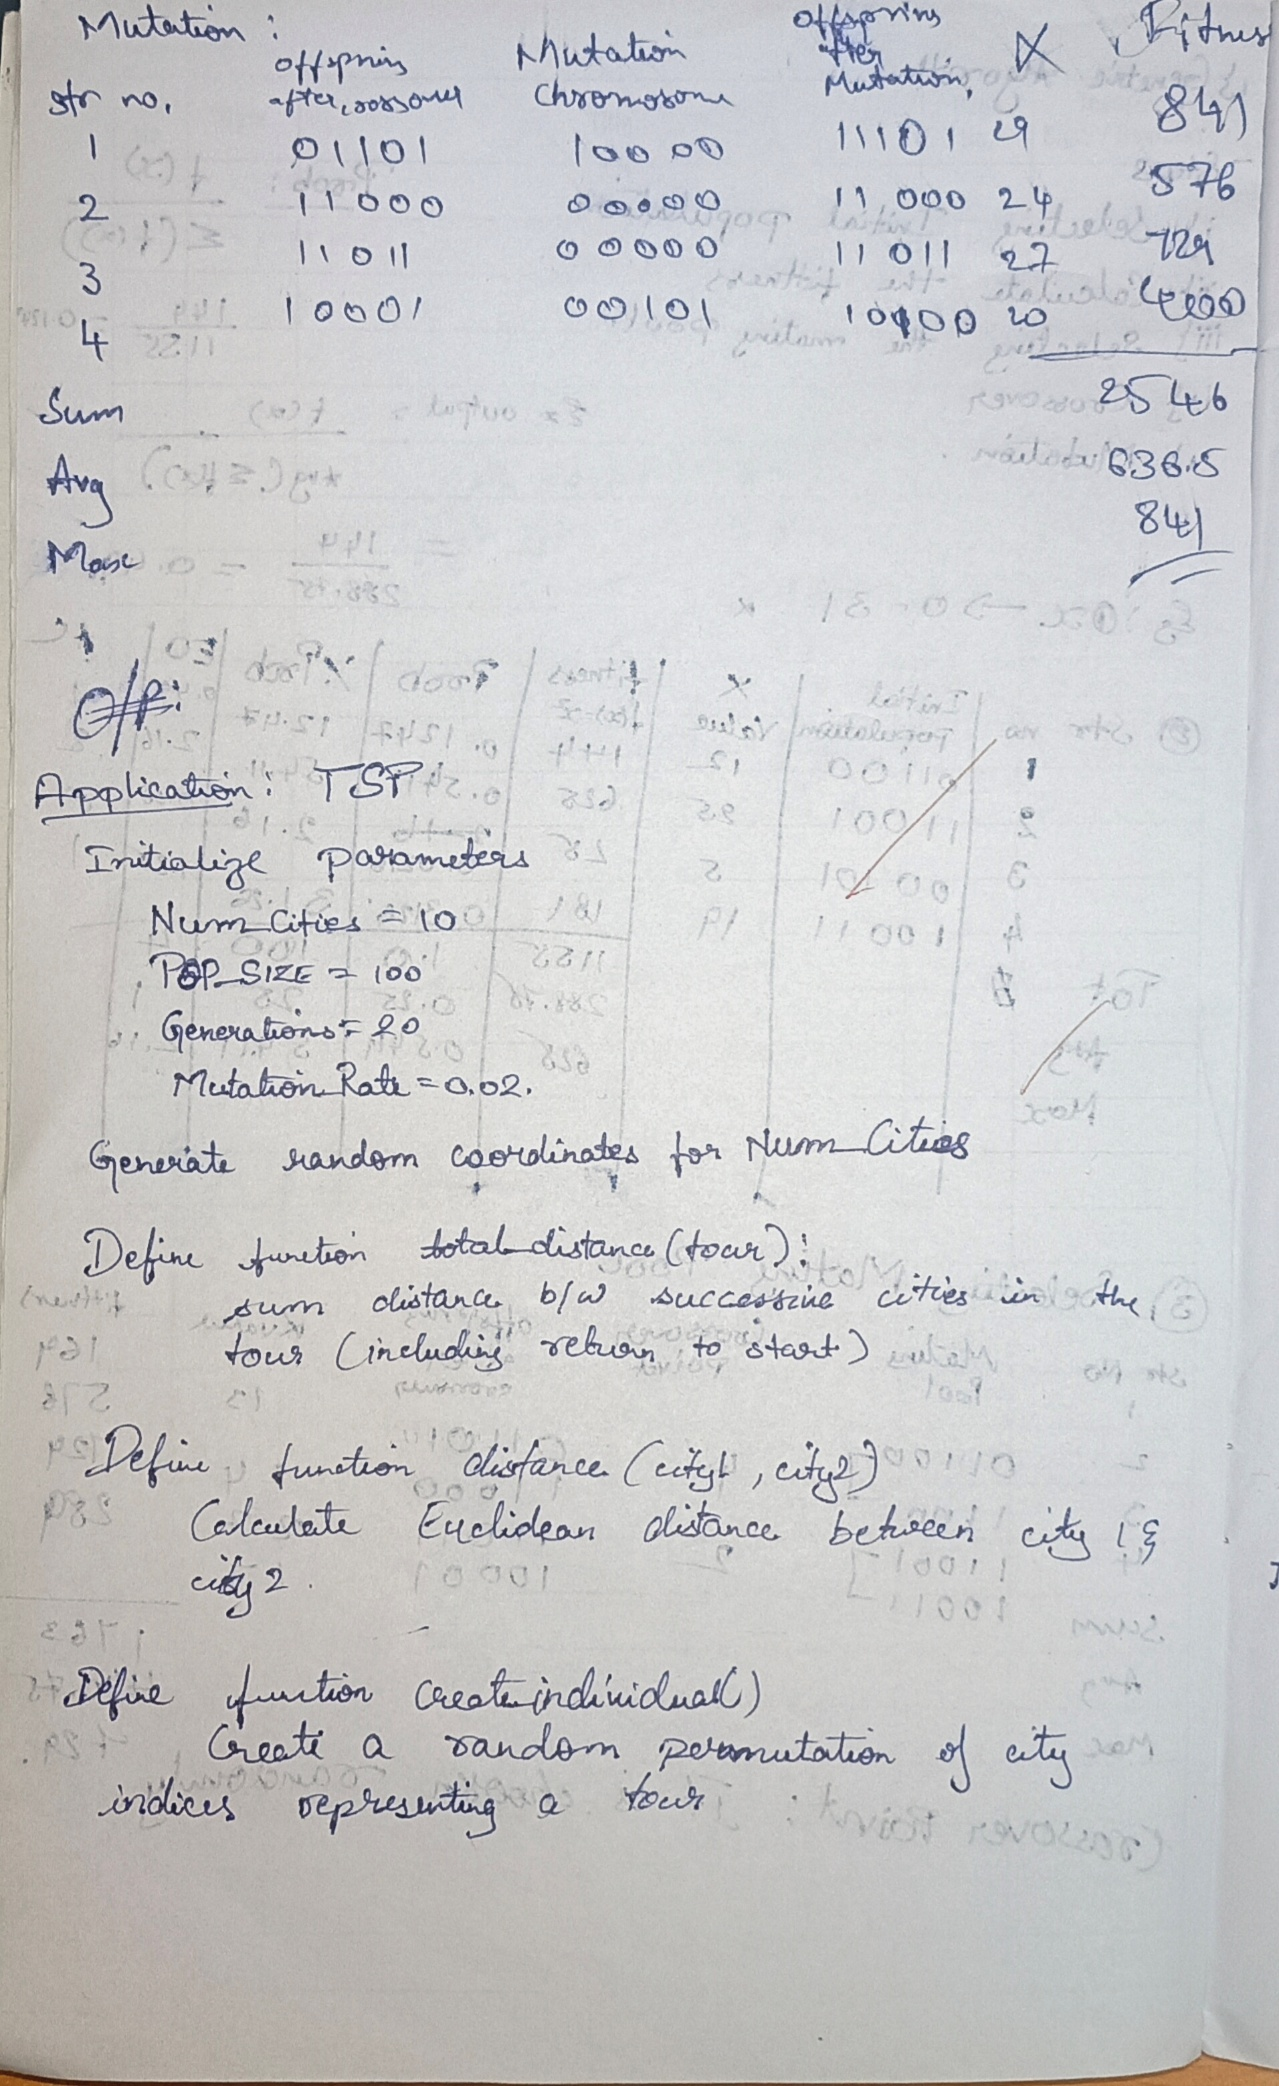 Mutation :
Str no. offspring after crossover Mutation Chromosome offspring after Mutation X Fitness
1 01101 10000 11101 29 841
2 11000 00000 11000 24 576
3 11011 00000 11011 27 729
4 10001 00101 10100 20 400
Sum 2546
Avg 636.5
Max 841
O/P:
Application: TSP
Initialize parameters
Num_Cities = 10
POP_SIZE = 100
Generations = 20
Mutation_Rate = 0.02.
Generate random coordinates for Num_Cities
Define function total_distance (tour):
sum distance b/w successive cities in the
tour (including return to start)
Define function distance (city1, city2)
Calculate Euclidean distance between city 1 &
city 2.
Define function create_individual()
Create a random permutation of city
indices representing a tour